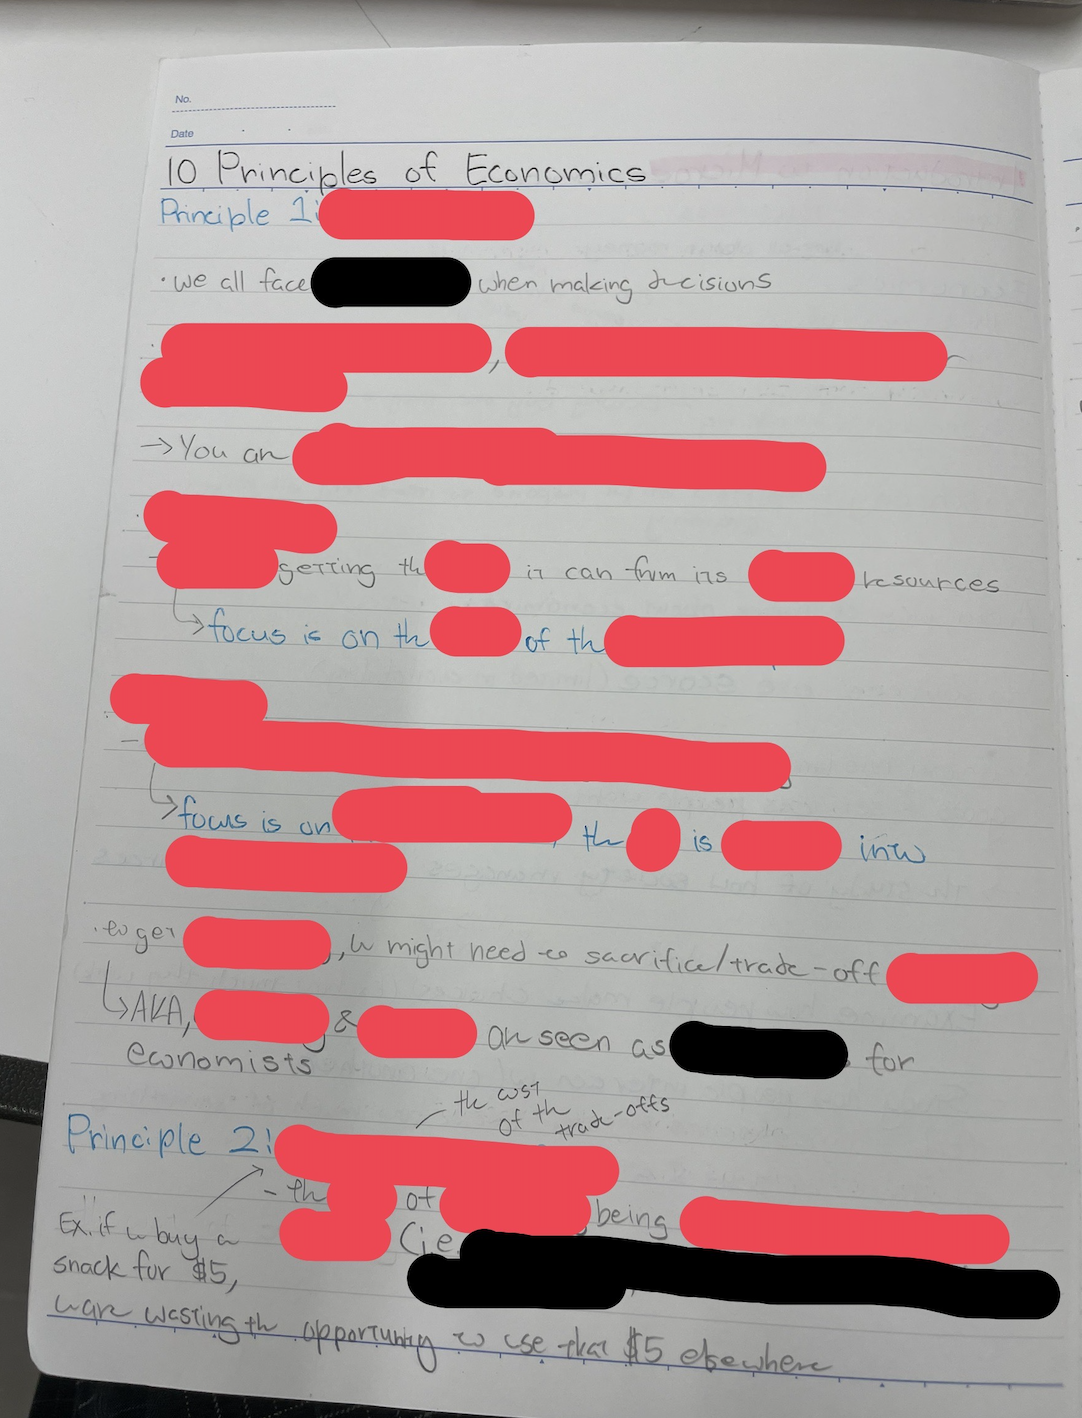 No.
Date
10 Principles of Economics
Principle 1:
· we all face when making decisions
,
→ You are
getting the it can from its resources
↳ focus is on the of the
-
↳ focus is on , the is into
· to get , u might need to sacrifice/trade-off
↳ AKA, & are seen as for
economists
the cost
of the
trade-offs
Principle 2:
- the of being
(i.e.
Ex. if u buy a
snack for $5,
u are wasting the opportunity to use that $5 elsewhere